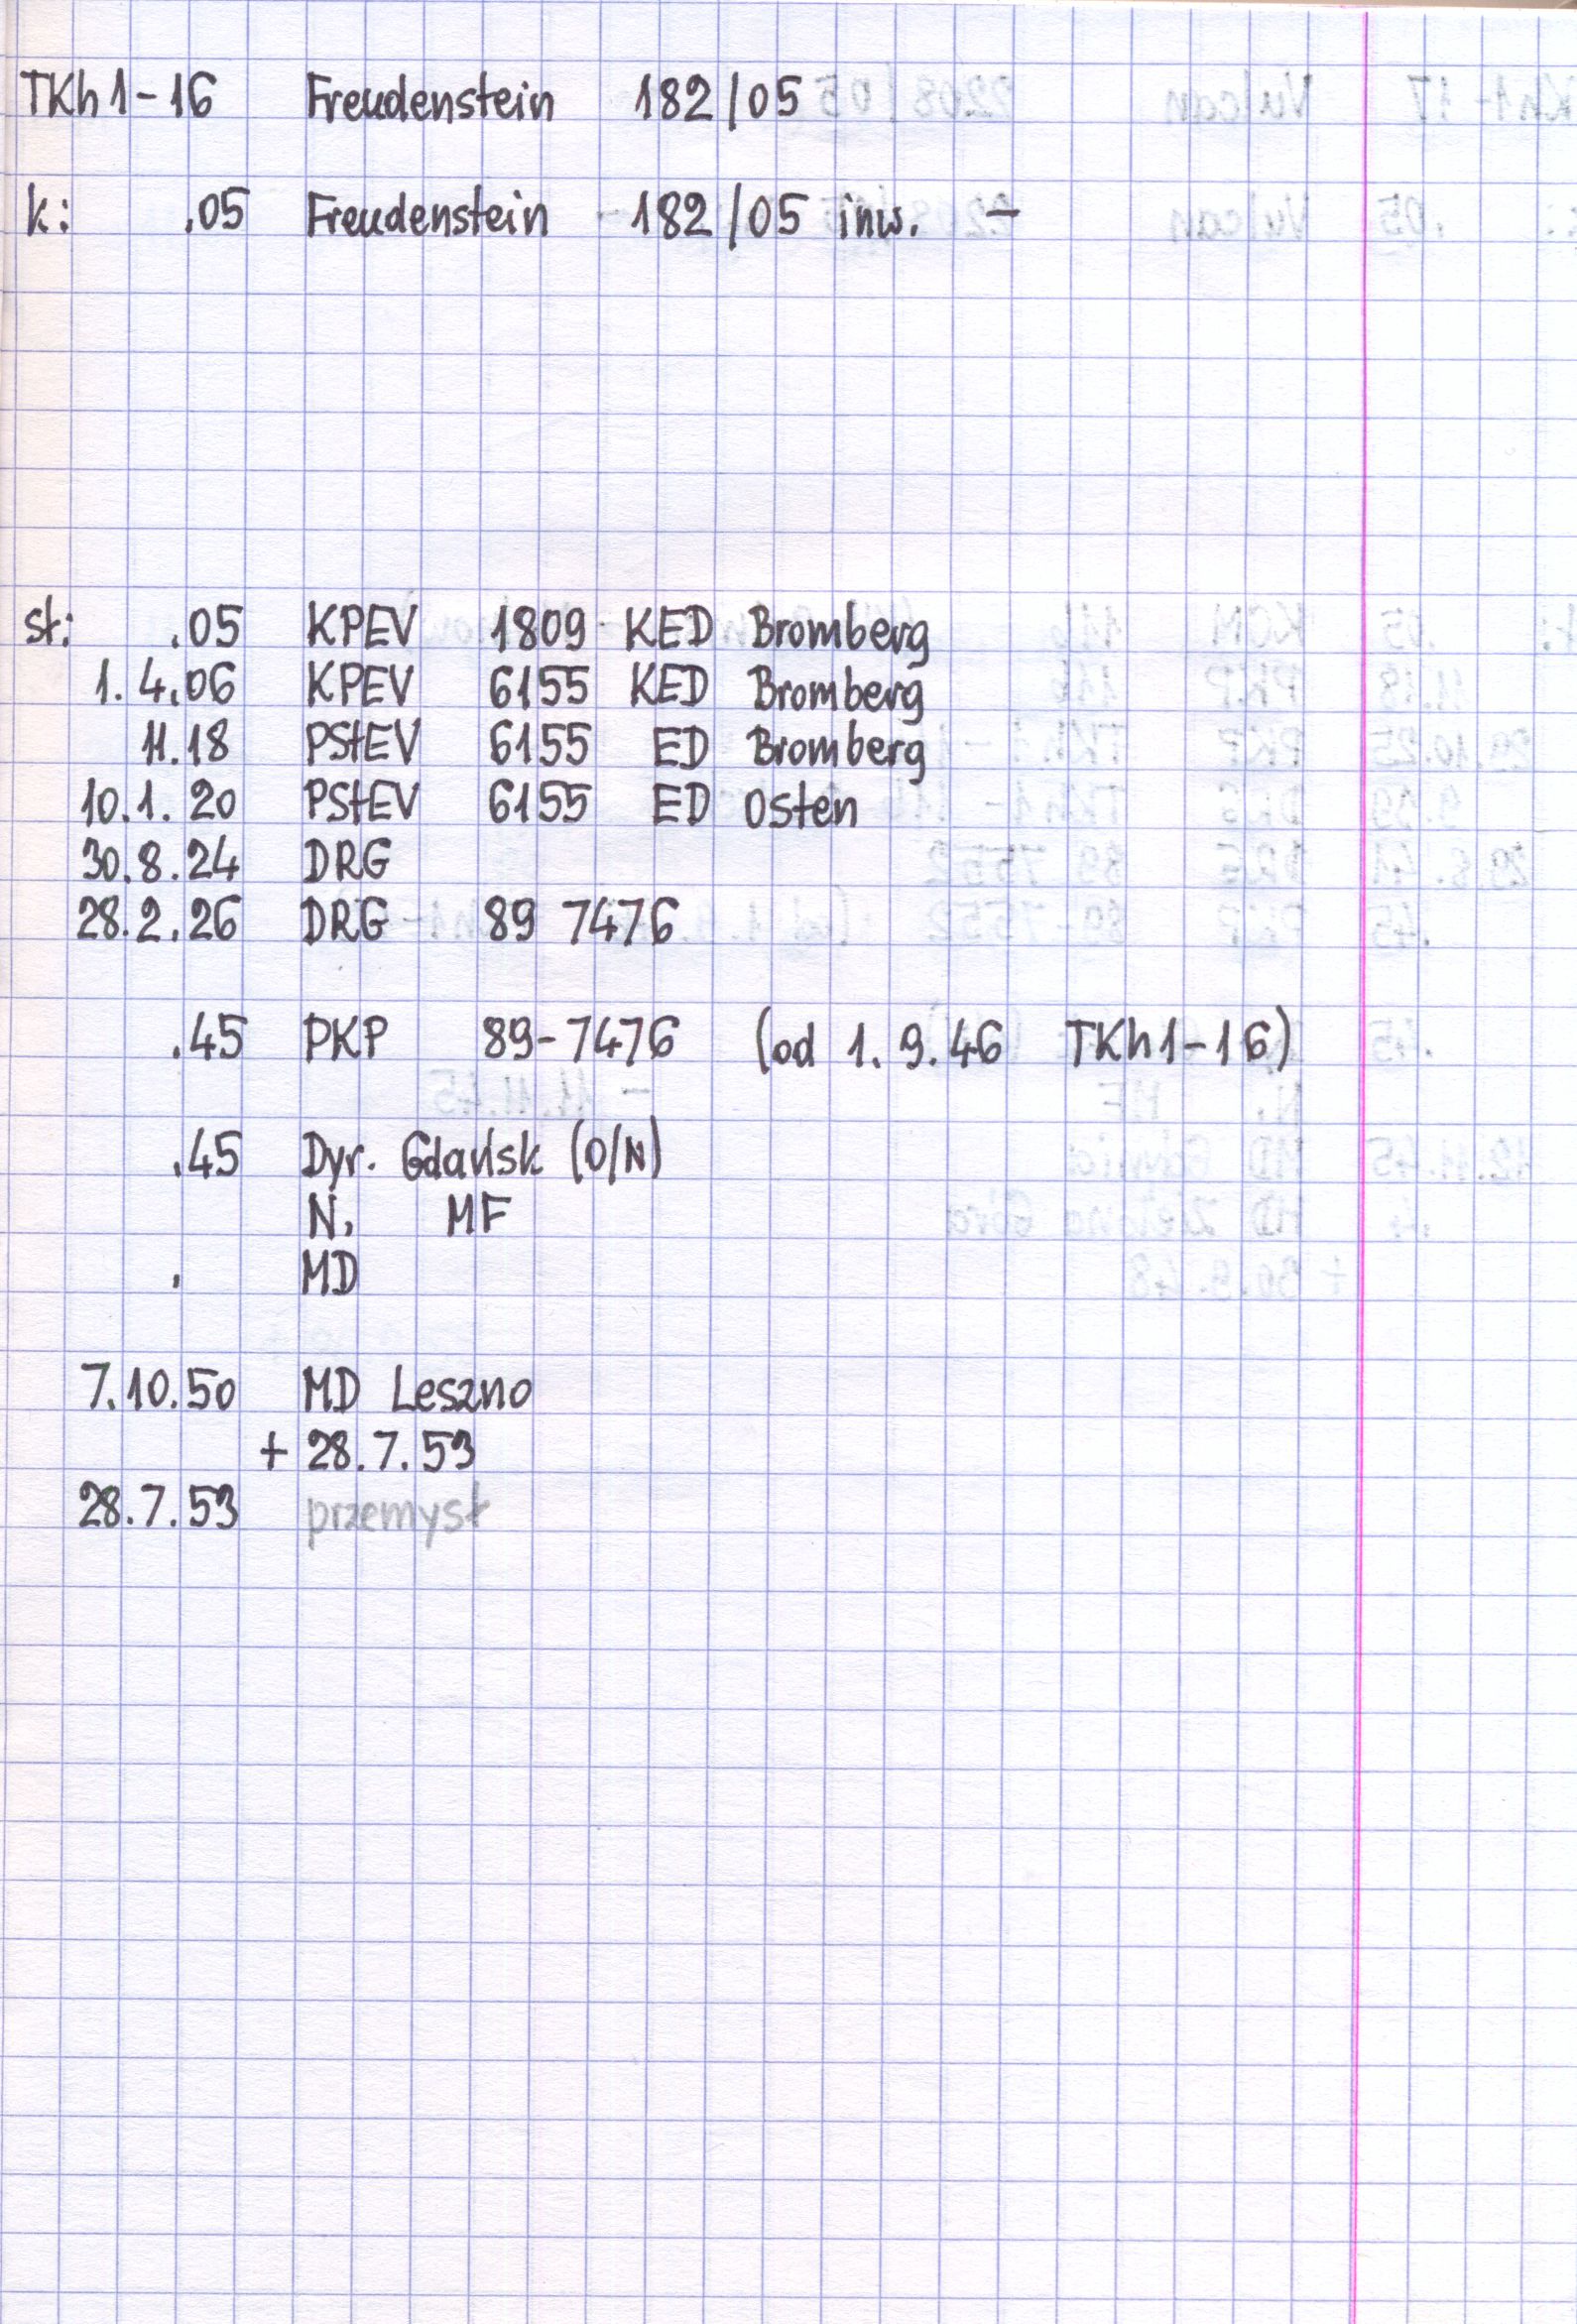 TKh1-16 Freudenstein 182/05
k: .05 Freudenstein 182/05 inw. -
st: .05 KPEV 1809 KED Bromberg
1.4.06 KPEV 6155 KED Bromberg
11.18 PStEV 6155 ED Bromberg
10.1.20 PStEV 6155 ED Osten
30.8.24 DRG
28.2.26 DRG 89 7476
.45 PKP 89-7476 (od 1.9.46 TKh1-16)
.45 Dyr. Gdańsk (O/N)
N. MF
. MD
7.10.50 MD Leszno
+ 28.7.53
28.7.53 przemysł